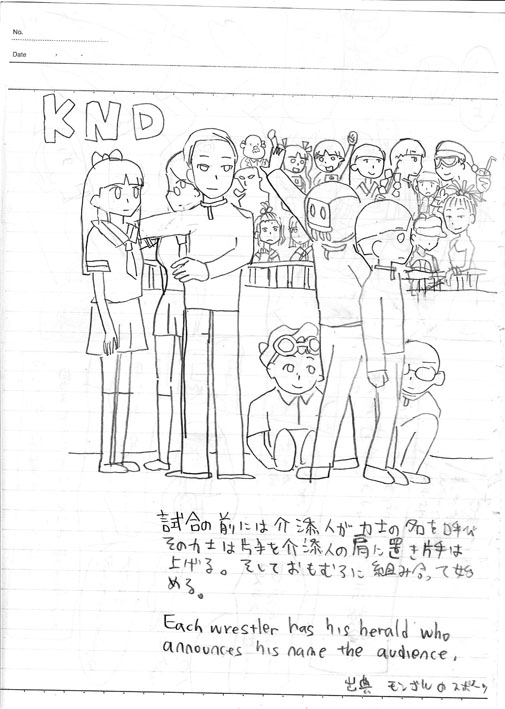 No.
Date
KND
試合の前には介添人が力士の名を呼び
その力士は片手を介添人の肩に置き片手は
上げる。そしておもむろに組み合って始
める。
Each wrestler has his herald who
announces his name the audience.
出典 モンゴルのスポーツ